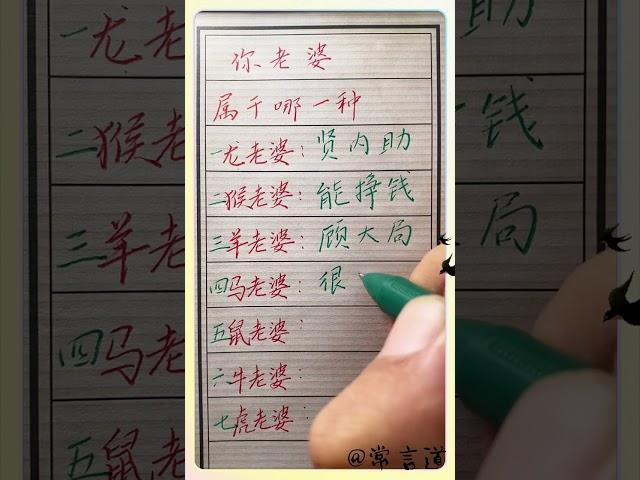 你老婆
属于哪一种
一龙老婆：贤内助
二猴老婆：能挣钱
三羊老婆：顾大局
四马老婆：很
五鼠老婆：
六牛老婆：
七虎老婆：
@常言道